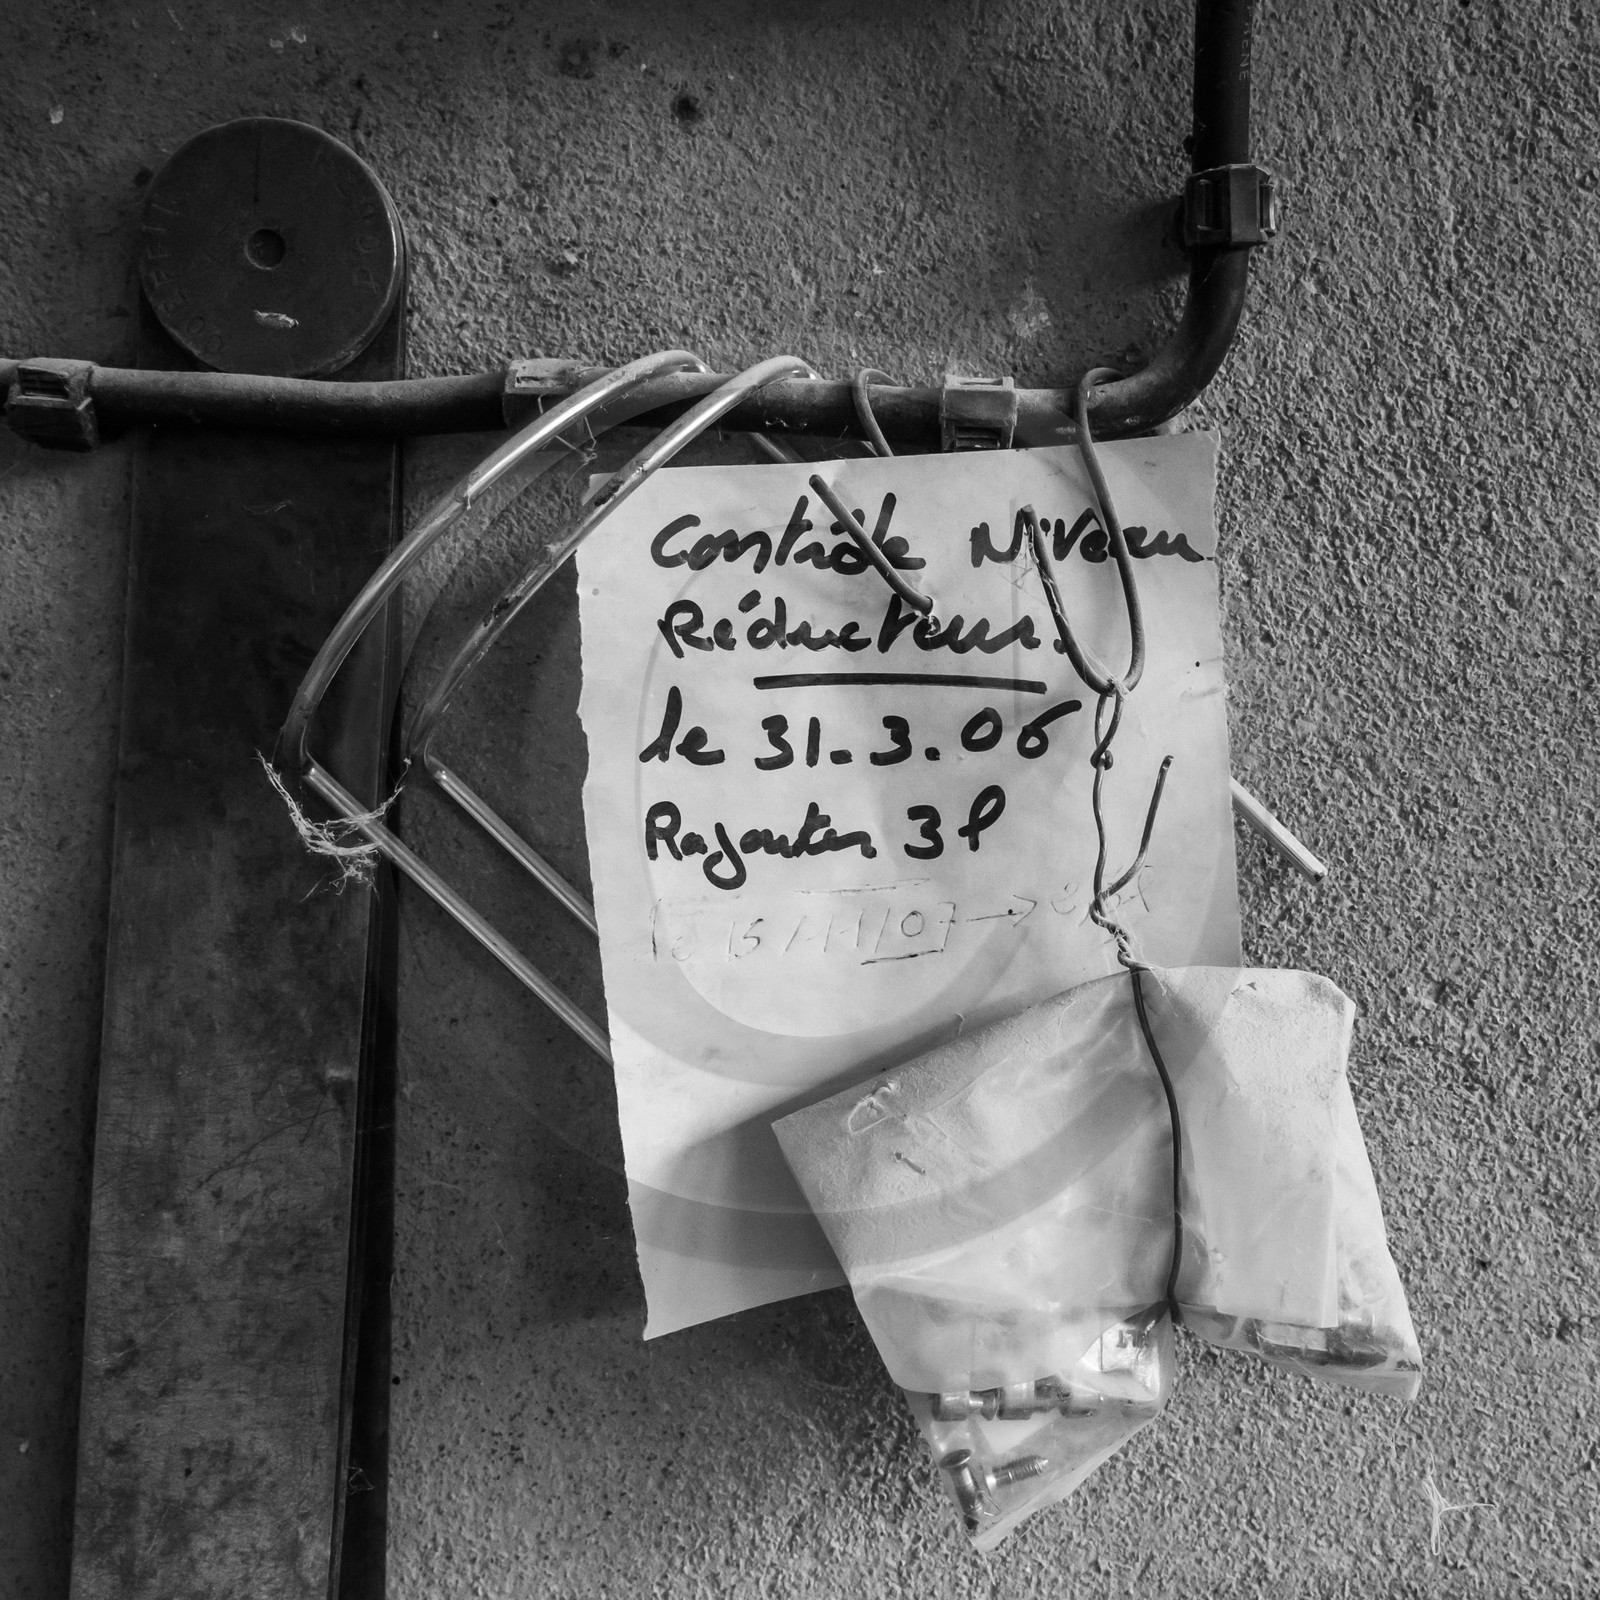 Contrôle Niveau
Réducteur.
le 31.3.06
Rajouter 3l
le 15/11/07 →